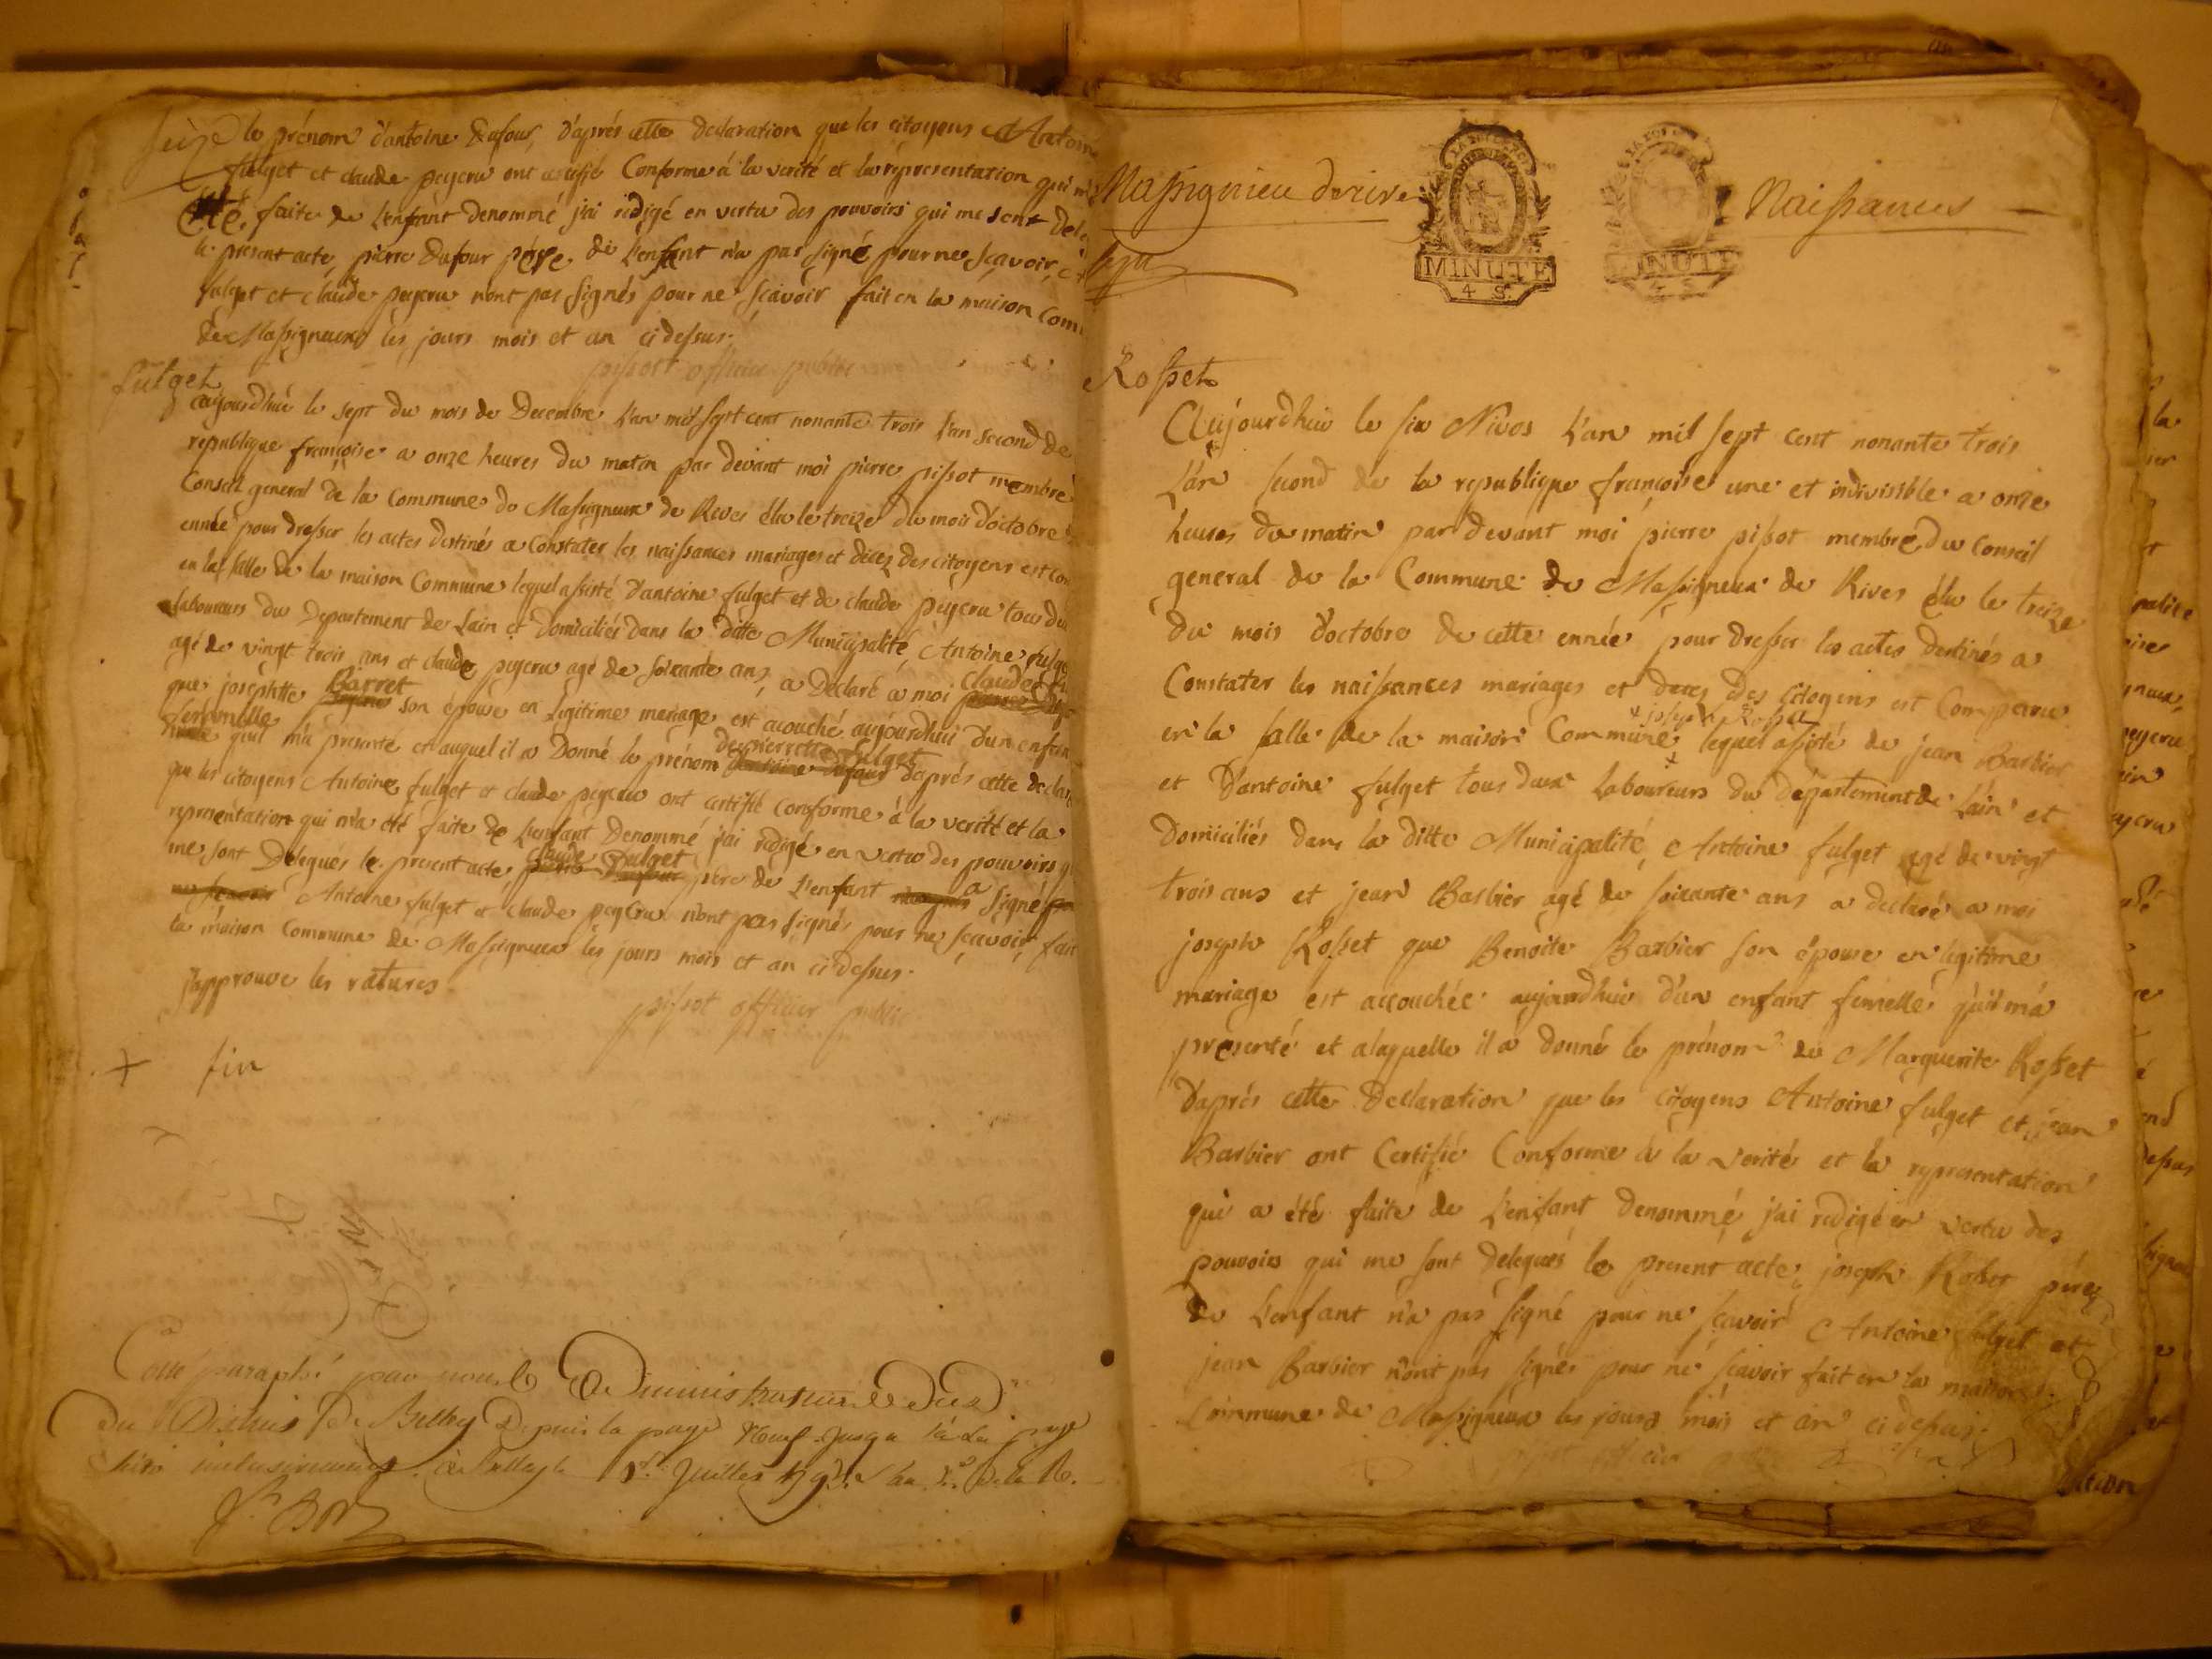 seize le prénom d'antoine Dufour, d'aprés cette declaration que les citoyens Antoine
fulget et claude peycru ont certifié Conforme à la verité et la representation qui m'a
été faite de L'enfant denommé j'ai redigé en vertu des pouvoirs qui me sont
le present acte, pierre Dufour pére de L'enfant n'a pas signé pour ne sçavoir,
fulget et claude peycru n'ont pas signés pour ne sçavoir fait en la maison
de Massigneux les jours mois et an ci dessus.
pissot officier public
fulget
aujourdhui le sept du mois de Decembre L'an mil sept cent nonante trois L'an second de
republique françoise a onze heures du matin par devant moi pierre pissot membre
Conseil general de la Commune de Massigneux de Rives élu le treize du mois d'octobre
ennée pour dresser les actes destinés a Constater les naissances mariages et deces des citoyens est
en la salle de la maison Commune lequel assisté d'antoine fulget et de claude peycru tous
laboureurs du Departement de Lain et domiciliés dans la ditte Municipalité, Antoine
agé de vingt trois ans et claude peycru agé de soixante ans, a Declaré a moi claude
que josephtte Barret son épouse en legitime mariage est acouché aujourdhui d'un
femmelle qu'il m'a presenté et auquel il a Donné le prénom de pierrette fulget d'aprés cette
que les citoyens Antoine fulget et claude peycru ont certifié conforme à la verité et la
representation qui m'a été faite de L'enfant Denommé j'ai redigé en vertu des pouvoirs
me sont Delegués le present acte, claude fulget pére de L'enfant a signé
Antoine fulget et claude peycru n'ont pas signés pour ne sçavoir, fait
la maison Commune de Massigneux les jours mois et an ci dessus.
j'approuve les ratures
pissot officier public
+ fin
paraphé par nous
Du District de Belley Depuis la page Neuf jusqu'à la page
inclusivement. à Belley le Juillet
Massignieu de rives
Naissances
MINUTE
4 S.
MINUTE
4 S
Rosset
Aujourdhui le six Nivos L'an mil sept cent nonante trois
L'an second de la republique françoise une et indivisible a onze
heures du matin par devant moi pierre pissot membre du Conseil
general de la Commune de Massigneux de Rives élu le treize
du mois d'octobre de cette ennée pour dresser les actes destinés a
Constater les naissances mariages et deces des citoyens est Comparu
+ joseph Rosset
en la salle de la maison Commune + lequel assisté de jean Barbier
et d'antoine fulget tous deux laboureurs du département de Lain et
domiciliés dans la ditte Municipalité, Antoine fulget agé de vingt
trois ans et jean Barbier agé de soixante ans a declaré a moi
joseph Rosset que Benoite Barbier son épouse en legitime
mariage est accouchée aujourdhui d'un enfant femelle qu'il m'a
presenté et a laquelle il a donné le prénom de Marguerite Rosset
d'aprés cette Declaration que les citoyens Antoine fulget et jean
Barbier ont Certifié Conforme à la verité et la representation
qui a été faite de L'enfant denommé j'ai redigé en vertu des
pouvoirs qui me sont delegués le present acte, joseph Rosset pére
de L'enfant n'a pas signé pour ne sçavoir Antoine fulget et
jean Barbier n'ont pas signés pour ne scavoir fait en la maison
Commune de Massigneux les jours mois et an ci dessus.